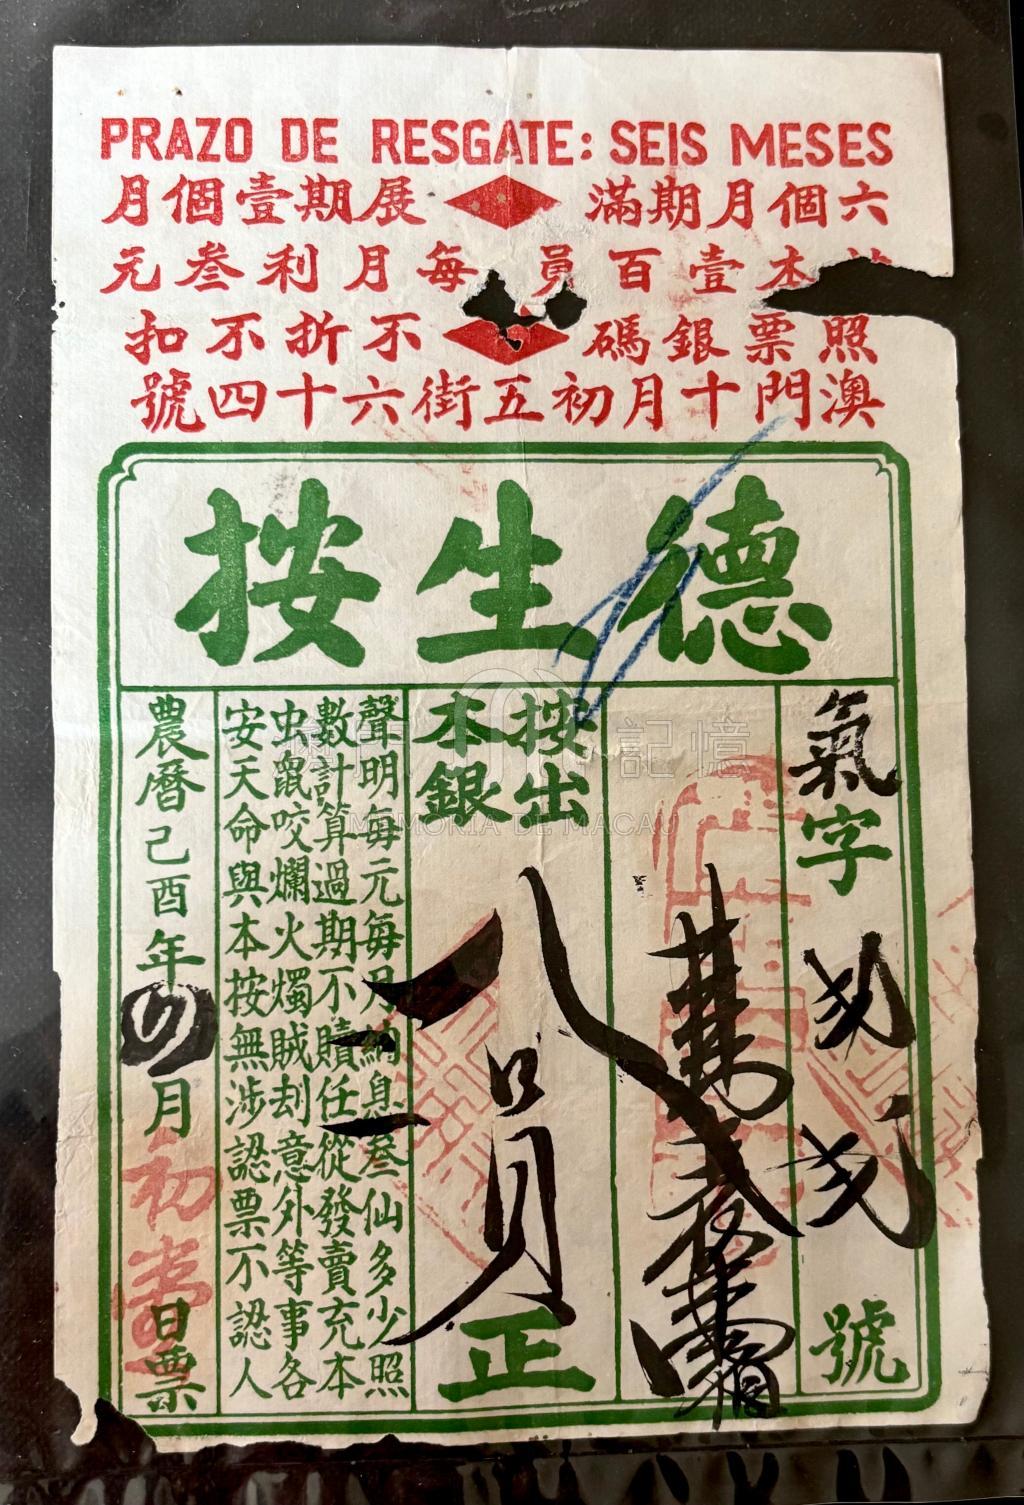 PRAZO DE RESGATE: SEIS MESES
六個月期滿 展期壹個月
本壹百員每月利叁元
照票銀碼 不折不扣
澳門十月初五街六十四號
德生按
氣字
號
按出
本銀
八員正
聲明每元每月納息叁仙多少照
數計算過期不贖任從發賣充本
虫鼠咬爛火燭賊刦意外等事各
安天命與本按無涉認票不認人
農曆己酉年四月初壹日票
澳門記憶
MEMÓRIA DE MACAU